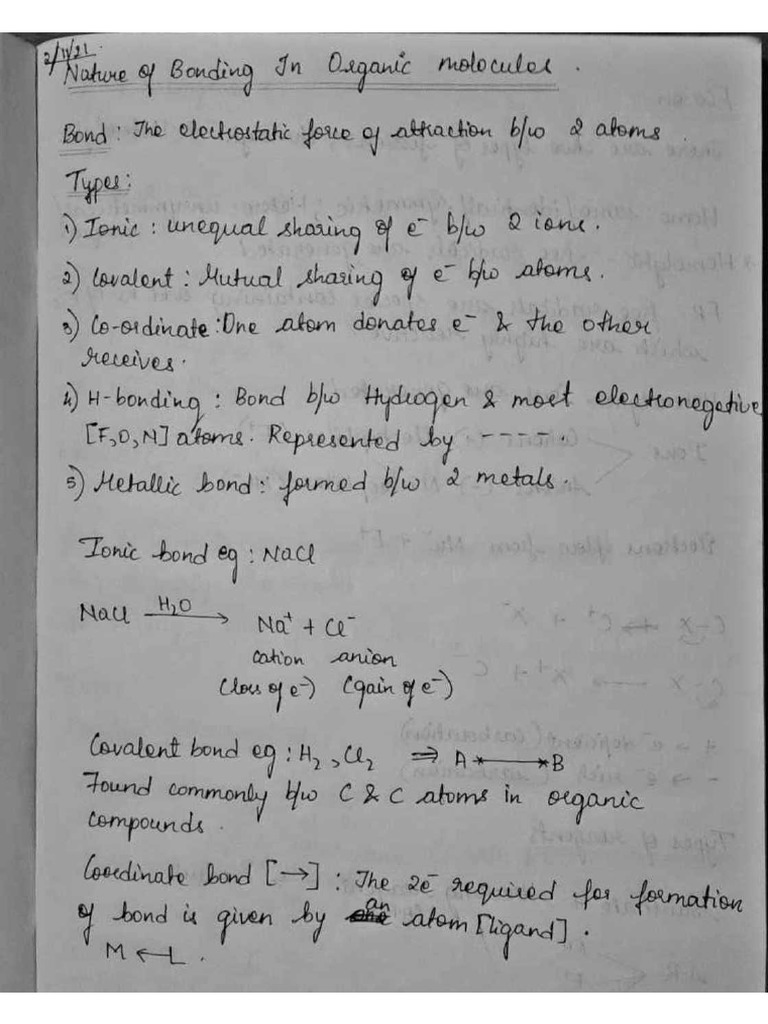 2/11/21
Nature of Bonding In Organic molecules.
Bond: The electrostatic force of attraction b/w 2 atoms.
Types:
1) Ionic : unequal sharing of e⁻ b/w 2 ions.
2) Covalent : Mutual sharing of e⁻ b/w atoms.
3) Co-ordinate : One atom donates e⁻ & the other
receives.
4) H-bonding : Bond b/w Hydrogen & most electronegative
[F,O,N] atoms. Represented by -----.
5) Metallic bond : formed b/w 2 metals.
Ionic bond eg : NaCl
NaCl H₂O→ Na⁺ + Cl⁻
cation anion
(loss of e⁻) (gain of e⁻)
Covalent bond eg : H₂, Cl₂ ⇒ A*——*B
Found commonly b/w C & C atoms in organic
compounds.
Coordinate bond [→] : The 2e⁻ required for formation
of bond is given by an atom [ligand].
M ← L.